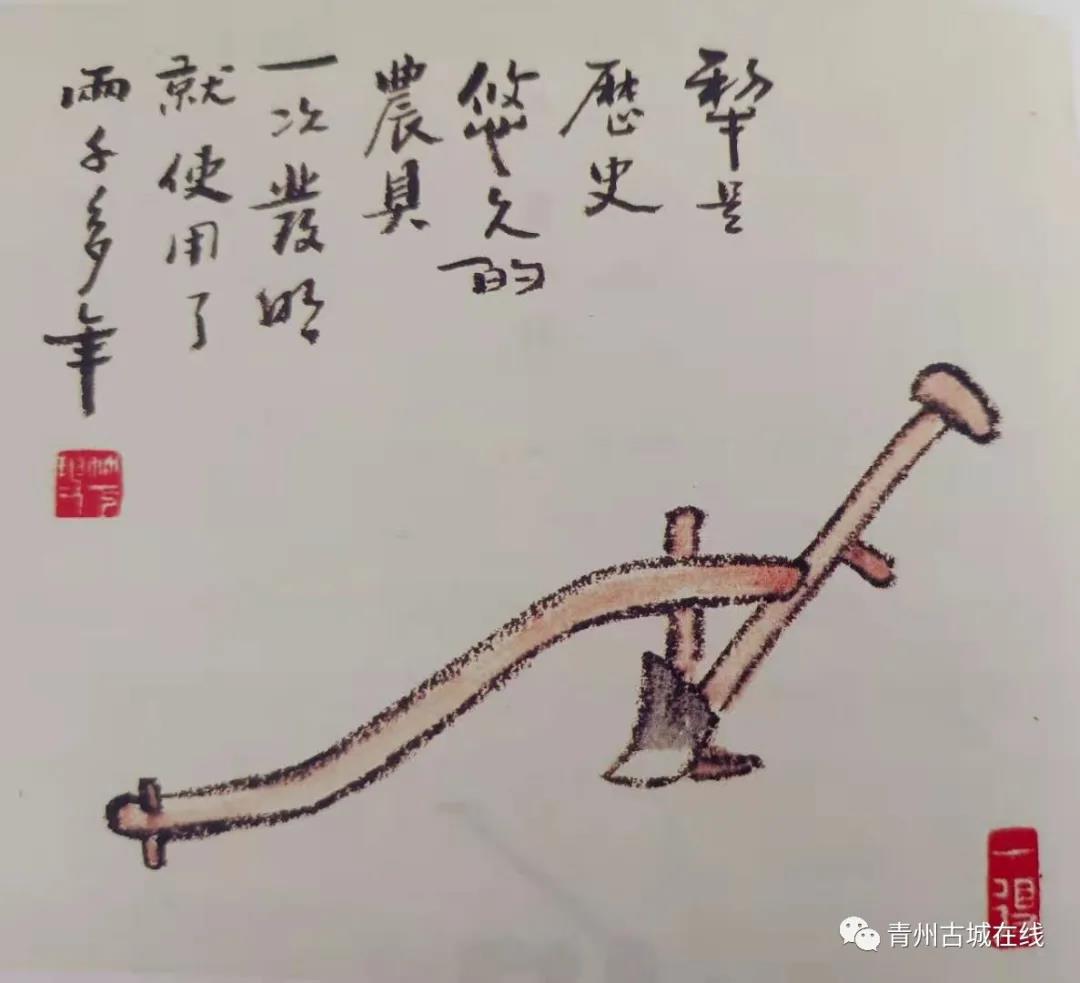 犂是
歷史
悠久的
農具
一次發明
就使用了
兩千多年
青州古城在线